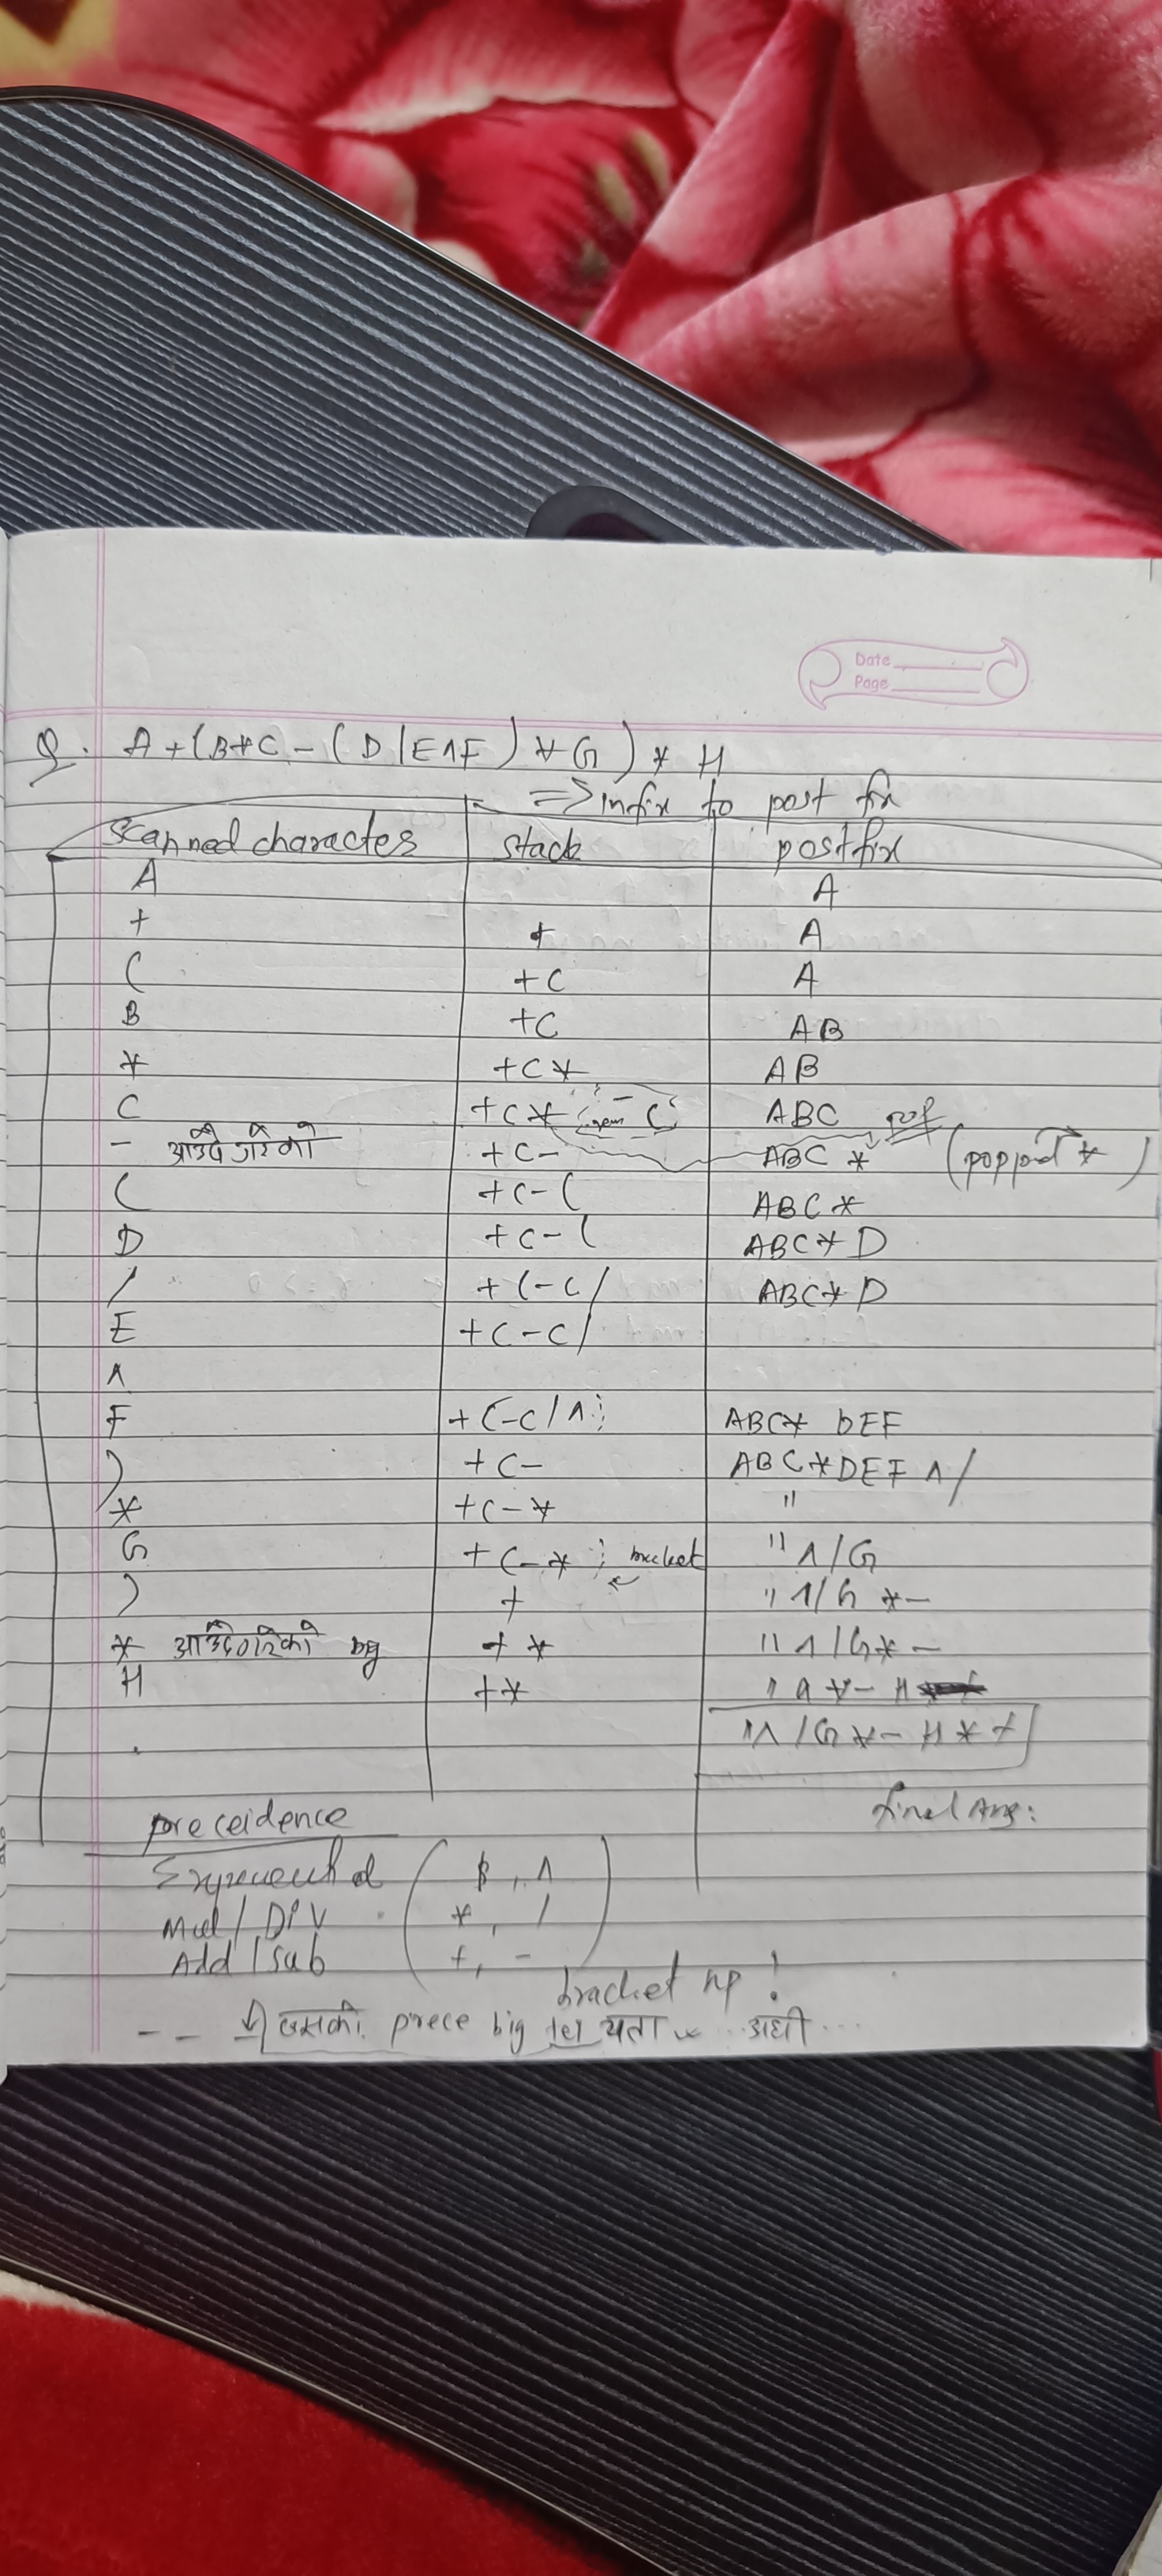 Date
Page
Q. A+(B*C-(D/E^F)*G)*H
=> Infix to post fix
Scanned character stack postfix
A A
+ + A
( +( A
B +( AB
* +(* AB
C +(* ABC
- +(- ABC * (popped *)
( +(-( ABC*
D +(-( ABC*D
/ +(-(/ ABC*D
E +(-(/
^
F +(-(/^ ABC* DEF
) +(- ABC*DEF^/
* +(-* "
G +(-* bracket " ^/G
) + " ^/G *-
* + * " ^/G*-
H +*
"^/G*-H*+
final Ans:
preceidence
$, ^
Mul/DIV *, /
Add/sub +, -
bracket np!
prece big